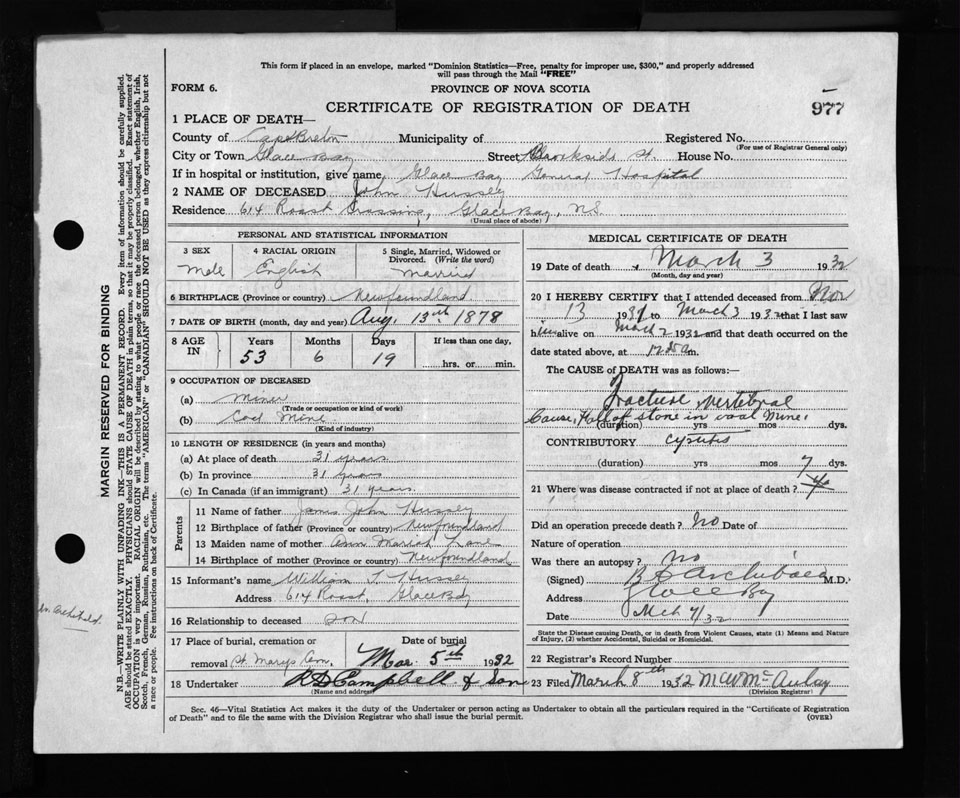 This form if placed in an envelope, marked "Dominion Statistics—Free, penalty for improper use, $300," and properly addressed
will pass through the Mail "FREE"
FORM 6. PROVINCE OF NOVA SCOTIA
CERTIFICATE OF REGISTRATION OF DEATH 977
1 PLACE OF DEATH—
County of Cape Breton Municipality of Registered No.
(For use of Registrar General only)
City or Town Glace Bay Street Brookside St. House No.
If in hospital or institution, give name, Glace Bay General Hospital
2 NAME OF DECEASED John Hussey
Residence 614 Roost Crossing, Glace Bay, N.S.
(Usual place of abode)
PERSONAL AND STATISTICAL INFORMATION
3 SEX 4 RACIAL ORIGIN 5 Single, Married, Widowed or
Divorced. (Write the word)
Male English Married
6 BIRTHPLACE (Province or country) Newfoundland
7 DATE OF BIRTH (month, day and year) Aug. 13th 1878
8 AGE IN Years Months Days If less than one day,
53 6 19 hrs. or min.
9 OCCUPATION OF DECEASED
(a) Miner
(Trade or occupation or kind of work)
(b) Coal Mine
(Kind of industry)
10 LENGTH OF RESIDENCE (in years and months)
(a) At place of death 31 years
(b) In province 31 years
(c) In Canada (if an immigrant) 31 years.
Parents
11 Name of father James John Hussey
12 Birthplace of father (Province or country) Newfoundland
13 Maiden name of mother Ann Mariah Lane
14 Birthplace of mother (Province or country) Newfoundland
15 Informant's name William J. Hussey
Address 614 Roost, Glace Bay
16 Relationship to deceased Son
17 Place of burial, cremation or Date of burial
removal St. Marys Cem. Mar 5th 1932
18 Undertaker A D Campbell & Son
(Name and address)
MEDICAL CERTIFICATE OF DEATH
19 Date of death March 3 1932
(Month, day and year)
20 I HEREBY CERTIFY that I attended deceased from Nov
13 1931 to March 3 1932 that I last saw
him alive on March 2 1932 and that death occurred on the
date stated above, at m.
The CAUSE of DEATH was as follows:—
Fracture, vertebral
Cause, Fall of stone in coal mine.
(duration) yrs mos dys.
CONTRIBUTORY cystitis
(duration) yrs mos 7 dys.
21 Where was disease contracted if not at place of death?
Did an operation precede death? No Date of
Nature of operation
Was there an autopsy? No
(Signed) B C Archibald M.D.
Address Glace Bay
Date Mch 7/32
State the Disease causing Death, or in death from Violent Causes, state (1) Means and Nature
of Injury, (2) whether Accidental, Suicidal or Homicidal.
22 Registrar's Record Number
23 Filed March 8th 1932 M W McAulay
(Division Registrar)
Sec. 46—Vital Statistics Act makes it the duty of the Undertaker or person acting as Undertaker to obtain all the particulars required in the "Certificate of Registration
of Death" and to file the same with the Division Registrar who shall issue the burial permit. (OVER)
MARGIN RESERVED FOR BINDING
N.B.—WRITE PLAINLY WITH UNFADING INK—THIS IS A PERMANENT RECORD. Every item of information should be carefully supplied.
AGE should be stated EXACTLY. PHYSICIANS should STATE CAUSE OF DEATH in plain terms, so that it may be properly classified. Exact statement of
OCCUPATION is very important. RACIAL ORIGIN will be described by stating to what people or race the deceased person belonged, whether English, Irish,
Scotch, French, German, Russian, Ruthenian, etc. The terms "AMERICAN" or "CANADIAN" SHOULD NOT BE USED as they express citizenship but not
a race or people. See instructions on back of Certificate.